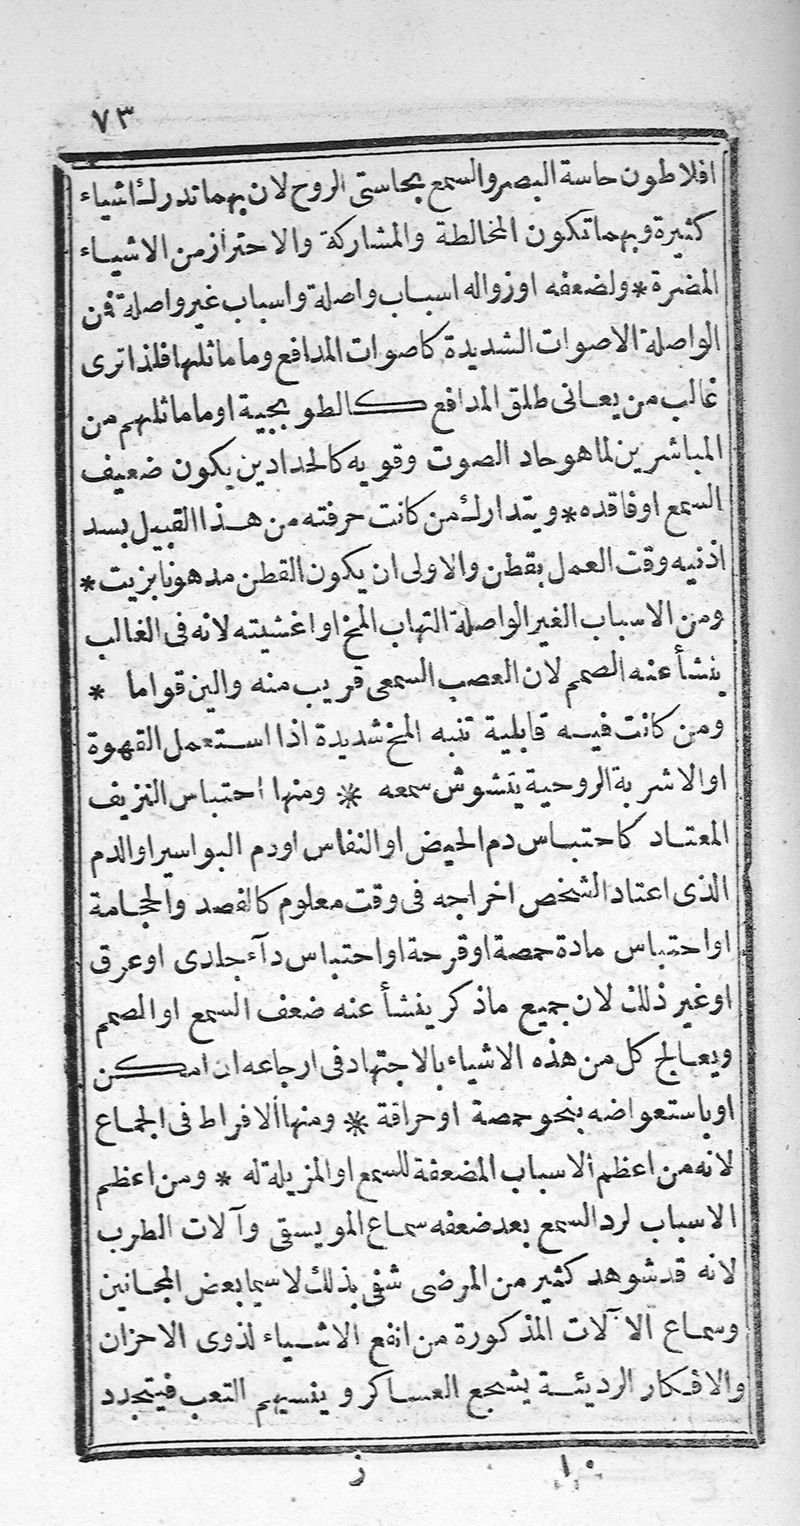 ٧٣
افلاطون حاسة البصر والسمع بحاستى الروح لان بهما تدرك اشياء
كثيرة وبهما تكون المخالطة والمشاركة والاحتراز من الاشياء
المضرة * ولضعفه اوزواله اسباب واصلة واسباب غير واصلة فمن
الواصلة الاصوات الشديدة كاصوات المدافع وما ماثلها فلذا ترى
غالب من يعانى طلق المدافع كالطوبجية او ما ماثلهم من
المباشرين لما هو حاد الصوت وقويه كالحدادين يكون ضعيف
السمع او فاقده * ويتدارك من كانت حرفته من هذا القبيل بسد
اذنيه وقت العمل بقطن والاولى ان يكون القطن مدهونا بزيت *
ومن الاسباب الغير الواصلة التهاب المخ او اغشيته لانه فى الغالب
ينشأ عنه الصمم لان العصب السمعى قريب منه والين قواما *
ومن كانت فيه قابلية تنبه المخ شديدة اذا استعمل القهوة
او الاشربة الروحية يتشوش سمعه * ومنها احتباس النزيف
المعتاد كاحتباس دم الحيض او النفاس او دم البواسير او الدم
الذى اعتاد الشخص اخراجه فى وقت معلوم كالفصد والحجامة
او احتباس مادة حمصة او قرحة او احتباس دآء جلدى او عرق
او غير ذلك لان جميع ماذكر ينشأ عنه ضعف السمع او الصمم
ويعالج كل من هذه الاشياء بالاجتهاد فى ارجاعه ان امكن
او باستعواضه بنحو حمصة او حراقة * ومنها الافراط فى الجماع
لانه من اعظم الاسباب المضعفة للسمع او المزيلة له * ومن اعظم
الاسباب لرد السمع بعد ضعفه سماع المويسقى وآلات الطرب
لانه قد شوهد كثير من المرضى شفى بذلك لاسيما بعض المجانين
وسماع الآلات المذكورة من انفع الاشياء لذوى الاحزان
والافكار الرديئة يشجع العساكر وينسيهم التعب فيتجدد
١٠ ز